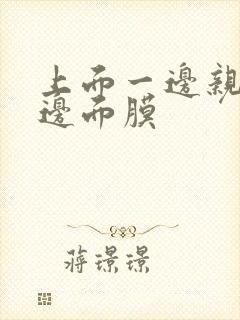 上面一邊親
邊面膜
蔣璟璟